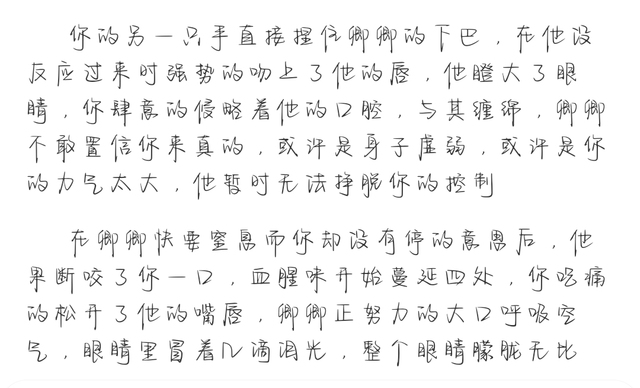 你的另一只手直接捏住卿卿的下巴，在他没
反应过来时强势的吻上了他的唇，他瞪大了眼
睛，你肆意的侵略着他的口腔，与其缠绵，卿卿
不敢置信你来真的，或许是身子虚弱，或许是你
的力气太大，他暂时无法挣脱你的控制
在卿卿快要窒息而你却没有停的意思后，他
果断咬了你一口，血腥味开始蔓延四处，你吃痛
的松开了他的嘴唇，卿卿正努力的大口呼吸空
气，眼睛里冒着几滴泪光，整个眼睛朦胧无比